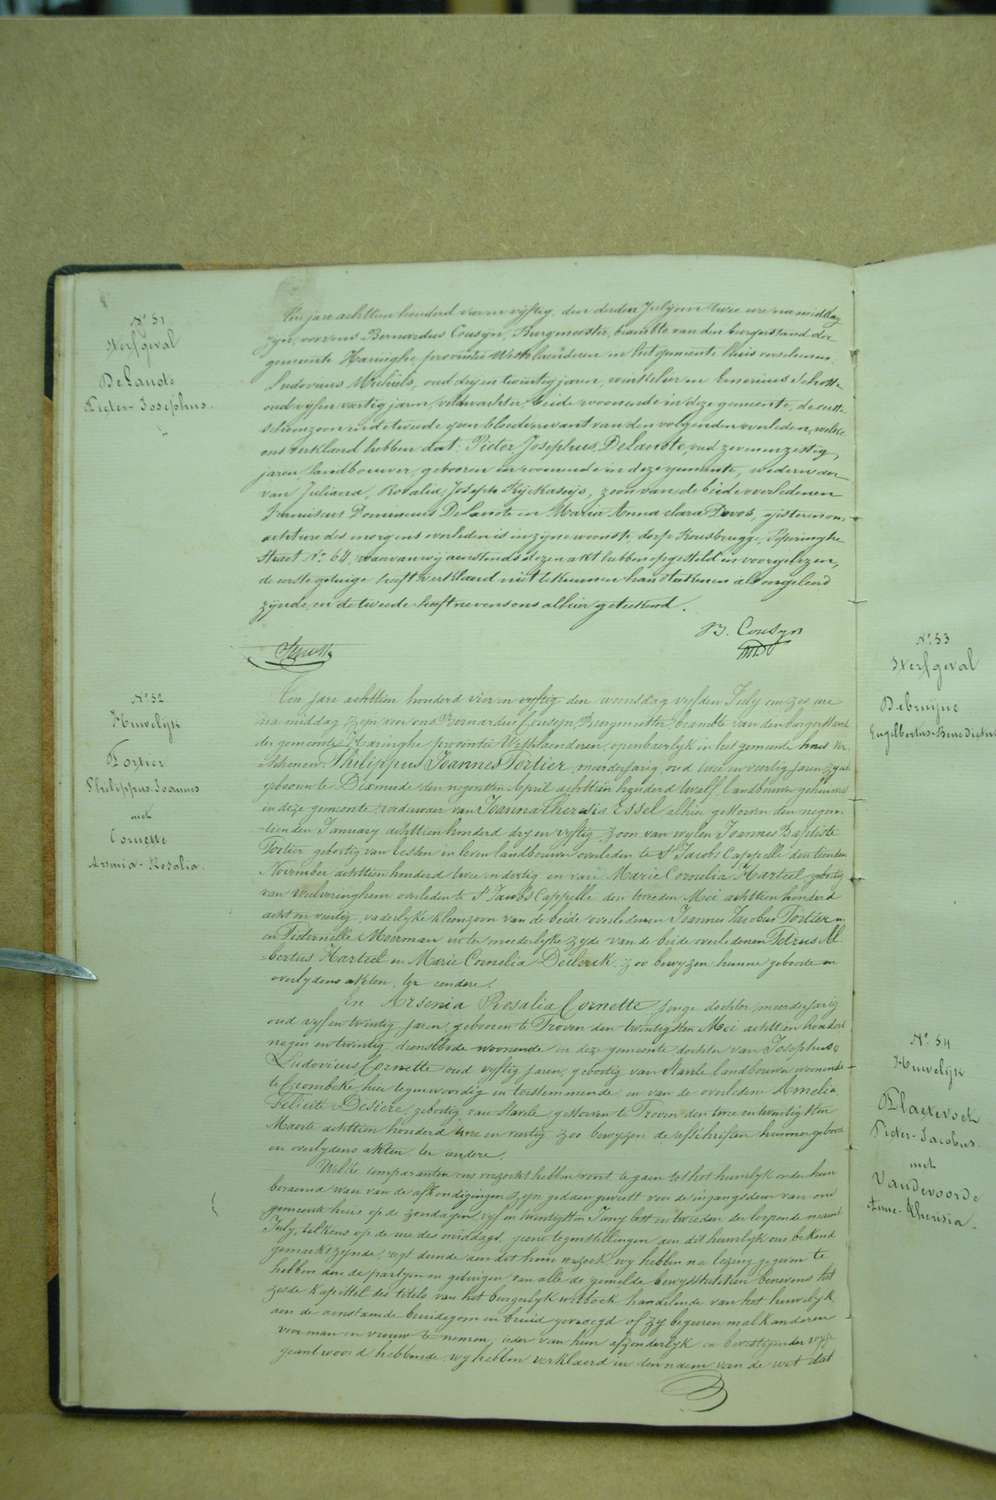 N° 51
Sterfgeval
DeLanote
Pieter-Josephus.
Ten jare achttien honderd vier en vyftig, den derden July om twee ure namiddag
zyn, voor ons Bernardus Cousyn, Burgmeester, beambte van den burgerstand der
gemeente Haringhe provintie Westvlaenderen in het gemeente huis verschenen
Ludovicus Michiels, oud dry en twintig jaren, winkelier en
oud vyf en veertig jaren, veldwachter, beide woonende in deze gemeente, de eerste
schoonzoon en de tweede geen bloedverwant van den volgenden overleden, welke
ons verklaerd hebben dat Pieter Josephus DeLanote, oud zeven en zestig
jaren, landbouwer, geboren en woonende in deze gemeente, weduwaer
van Juliana, Rosalia, Josepha Ryckasys, zoon van de beide overledenen
Franciscus Dominicus DeLanote en Maria Anna Clara Devos, gisteren om
acht ure des morgens overleden is in zyne woonste dorp Rousbrugge,
Straet N° 64, waervan wy aenstonds dezen akt hebben opgesteld en voorgelezen,
de eerste getuige heeft verklaerd niet te kunnen handteekenen als ongeleerd
zynde, en de tweede heeft nevens ons alhier geteekend.
B. Cousyn
N° 52
Huwelijk
Tortier
Philippus-Joannes
met
Cornette
Arsenia-Rosalia.
Ten jare achttien honderd vier en vyftig den woensdag vyfden July om zes ure
na middag zyn voor ons Bernardus Cousyn, Burgmeester, beambte van den borgerstand
der gemeente Haringhe provintie Westvlaenderen, openbaerlyk in het gemeente huis ver
schenen Philippus Joannes Tortier, meerderjarig, oud twee en veertig jaren,
geboren te Dixmude den negensten April achttien honderd twaelf landbouwer gehuisvest
in deze gemeente, weduwaer van Joanna Theresia Essel alhier gestorven den negen
tienden January achttien honderd dry en vyftig, zoon van wylen Joannes Baptiste
Tortier geboortig van Eessen in leven landbouwer overleden te St Jacobs Cappelle den tienden
November achttien honderd twee en dertig en van Marie CorneliaHarteel, geboortig
van Wulveringhem overleden te St Jacobs Cappelle den tweeden Mei achttien honderd
acht en veertig, vaderlyke kleinzoon van de beide overledenen Joannes Jacobus Tortier
en Pieternelle Moerman en ter moederlyke zyde van de beide overledenen Petrus Al
bertus Harteel en Marie Cornelia Declerck, zoo bewyzen hunne geboorte en
overlydens akten, ter eendere,
En Arsenia Rosalia Cornette, jonge dochter, meerderjarig
oud vyf en twintig jaren, geboren te Proven den twintigsten Mei achttien honderd
negen en twintig, dienstbode woonende in deze gemeente dochter van Josephus
Ludovicus Cornette oud vyftig jaren, geboortig van Stavele landbouwer woonende
te Crombeke hier tegenwoordig en toestemmende, en van de overledene Amelia
Felicite Desiere, geboortig van Stavele, gestorven te Proven den twee en twintigsten
Maerte achttien honderd twee en veertig, zoo bewyzen de afschriften hunner geboorte
en overlydens akten ter andere,
Welke comparanten ons verzocht hebben voort te gaen tot het huwelyk onder hun
beraemd waer van de afkondigingen zyn gedaen geweest voor de ingangdeur van ons
gemeente huis op de zondagen vyf en twintigsten Juny lest en tweeden der loopende maend
July, telkens op de ure des middags, geene tegenstellingen aen dit huwelyk ons bekend
gemaekt zynde, regt doende aen dit hun verzoek, wy hebben na lezing gegeven te
hebben aen de partyen en getuigen van alle de gemelde bewysstukken benevens het
zesde kapittel des titels van het burgerlyk wetboek handelende van het huwelyk
aen de aenstaende bruidegom en bruid gevraegd of zy begeeren malkanderen
voor man en vrouw te nemen, ieder van hun afzonderlyk en bevestigender wyze
geantwoord hebbende, wy hebben verklaerd in den naem van de wet dat
N° 53
Sterfgeval
Debruijne
Engelbertus-Benedictus
N° 54
Huwelijk
Plaetevoet
Pieter-Jacobus
met
Vandevoorde
Anne-Theresia.